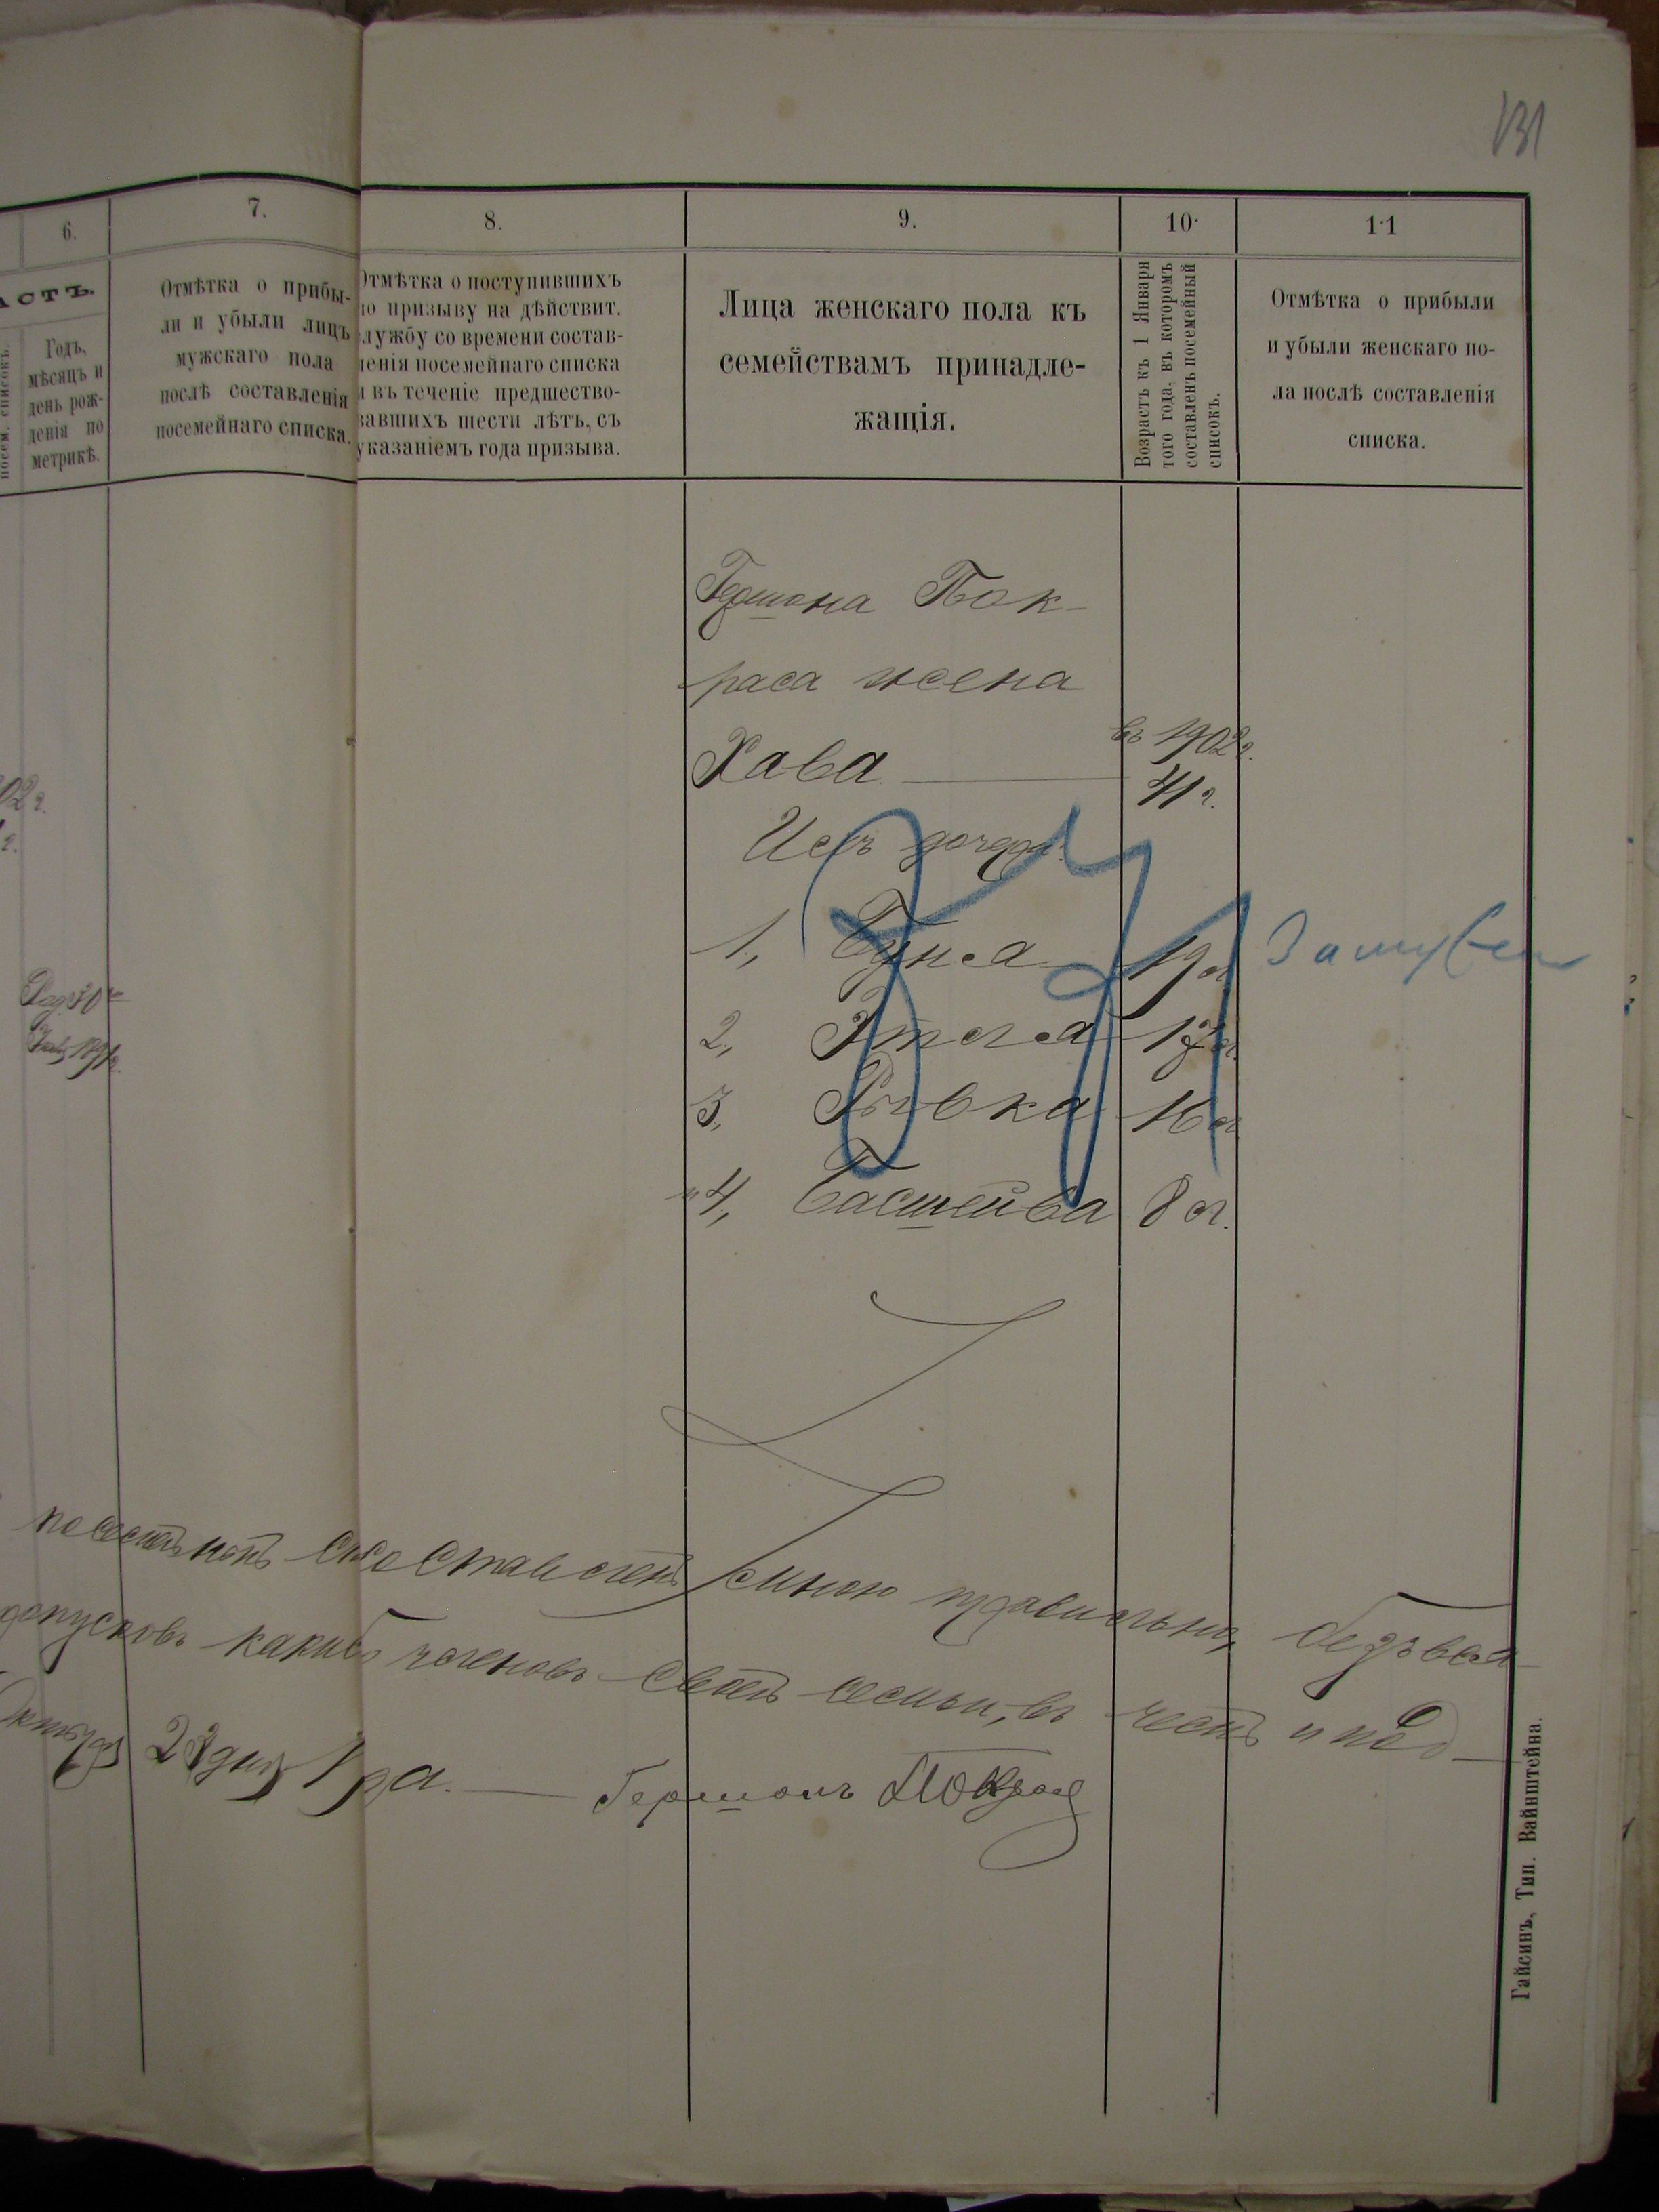 131
6.
7.
8.
9.
10.
11
АСТЪ.
Годъ,
мѣсяцъ и
день рож-
денія по
метрикѣ.
Отмѣтка о прибы-
ли и убыли лицъ
мужскаго пола
послѣ составленія
посемейнаго списка.
Отмѣтка о поступившихъ
по призыву на дѣйствит.
службу со времени состав-
ленія посемейнаго списка
и въ теченіе предшество-
вавшихъ шести лѣтъ, съ
указаніемъ года призыва.
Лица женскаго пола къ
семействамъ принадле-
жащія.
Возрастъ къ 1 Января
того года, въ которомъ
составленъ посемейный
списокъ.
Отмѣтка о прибыли
и убыли женскаго по-
ла послѣ составленія
списка.
Гершона Пок-
раса жена
въ 1902 г.
Хава 41 г.
Ихъ дочери:
1, Буня 19 л. Замужем
2, Этля 17 л.
3, Рывка 16 л.
4, Басшейва 8 л.
составленъ мною правильно, безъ
допусковъ какихъ членовъ своей семьи, въ чемъ и под-
Октября 22 дня
Гершонъ Покрас
Гайсинъ, Тип. Вайнштейна.